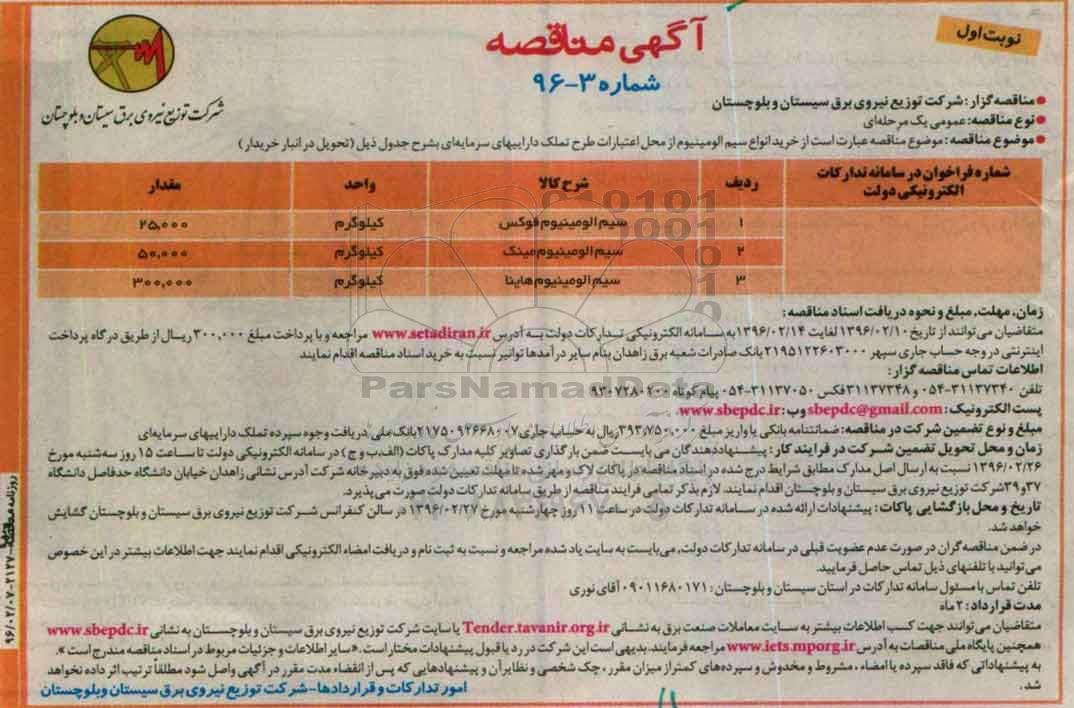 نوبت اول
آگهی مناقصه
شماره ۳-۹۶
شرکت توزیع نیروی برق سیستان و بلوچستان
● مناقصه گزار: شرکت توزیع نیروی برق سیستان و بلوچستان
● نوع مناقصه: عمومی یک مرحله‌ای
● موضوع مناقصه: موضوع مناقصه عبارت است از خرید انواع سیم الومینیوم از محل اعتبارات طرح تملک داراییهای سرمایه‌ای بشرح جدول ذیل (تحویل در انبار خریدار)
شماره فراخوان در سامانه تدارکات الکترونیکی دولت ردیف شرح کالا واحد مقدار
۱ سیم الومینیوم فوکس کیلوگرم ۲۵,۰۰۰
۲ سیم الومینیوم مینک کیلوگرم ۵۰,۰۰۰
۳ سیم الومینیوم هاینا کیلوگرم ۳۰۰,۰۰۰
زمان، مهلت، مبلغ و نحوه دریافت اسناد مناقصه:
متقاضیان می‌توانند از تاریخ ۱۳۹۶/۰۲/۱۰ لغایت ۱۳۹۶/۰۲/۱۴ به سامانه الکترونیکی تدارکات دولت به آدرس www.setadiran.ir مراجعه و با پرداخت مبلغ ۳۰۰,۰۰۰ ریال از طریق درگاه پرداخت
اینترنتی در وجه حساب جاری سپهر ۲۱۹۵۱۲۲۶۰۳۰۰۰ بانک صادرات شعبه برق زاهدان بنام سایر درآمدها توانیر نسبت به خرید اسناد مناقصه اقدام نمایند
اطلاعات تماس مناقصه گزار:
تلفن ۳۱۱۳۷۳۴۰-۰۵۴ و ۳۱۱۳۷۳۴۸ فکس ۳۱۱۳۷۰۵۰-۰۵۴ پیام کوتاه ۹۳۰۷۲۸۰۲۰۰
پست الکترونیک: sbepdc@gmail.com وب: www.sbepdc.ir
مبلغ و نوع تضمین شرکت در مناقصه: ضمانتنامه بانکی یا واریز مبلغ ۳۹۳,۷۵۰,۰۰۰ ریال به حساب جاری ۲۱۷۵۰۹۲۶۶۸۰۰۷ بانک ملی دریافت وجوه سپرده تملک داراییهای سرمایه‌ای
زمان و محل تحویل تضمین شرکت در فرایند کار: پیشنهاددهندگان می بایست ضمن بارگذاری تصاویر کلیه مدارک پاکات (الف، ب و ج) در سامانه الکترونیکی دولت تا ساعت ۱۵ روز سه‌شنبه مورخ
۱۳۹۶/۰۲/۲۶ نسبت به ارسال اصل مدارک مطابق شرایط درج شده در اسناد مناقصه در پاکات لاک و مهر شده تا مهلت تعیین شده فوق به دبیرخانه شرکت آدرس نشانی زاهدان خیابان دانشگاه حدفاصل دانشگاه
۳۷ و ۳۹ شرکت توزیع نیروی برق سیستان و بلوچستان اقدام نمایند. لازم بذکر تمامی فرایند مناقصه از طریق سامانه تدارکات دولت صورت می پذیرد.
تاریخ و محل بازگشایی پاکات: پیشنهادات ارائه شده در سامانه تدارکات دولت در ساعت ۱۱ روز چهارشنبه مورخ ۱۳۹۶/۰۲/۲۷ در سالن کنفرانس شرکت توزیع نیروی برق سیستان و بلوچستان گشایش
خواهد شد.
در ضمن مناقصه گران در صورت عدم عضویت قبلی در سامانه تدارکات دولت، می‌بایست به سایت یاد شده مراجعه و نسبت به ثبت نام و دریافت امضاء الکترونیکی اقدام نمایند جهت اطلاعات بیشتر در این خصوص
می‌توانید با تلفنهای ذیل تماس حاصل فرمایید.
تلفن تماس با مسئول سامانه تدارکات در استان سیستان و بلوچستان: ۰۹۰۱۱۶۸۰۱۷۱ آقای نوری
مدت قرارداد: ۲ ماه
متقاضیان می‌توانند جهت کسب اطلاعات بیشتر به سایت معاملات صنعت برق به نشانی Tender.tavanir.org.ir یا سایت شرکت توزیع نیروی برق سیستان و بلوچستان به نشانی www.sbepdc.ir
همچنین پایگاه ملی مناقصات به آدرس www.iets.mporg.ir مراجعه فرمایند. بدیهی است این شرکت در رد یا قبول پیشنهادات مختار است. «سایر اطلاعات و جزئیات مربوط در اسناد مناقصه مندرج است».
به پیشنهاداتی که فاقد سپرده یا امضاء، مشروط و مخدوش و سپرده‌های کمتر از میزان مقرر، چک شخصی و نظایر آن و پیشنهادهایی که پس از انقضاء مدت مقرر در آگهی واصل شود مطلقاً ترتیب اثر داده نخواهد
شد.
امور تدارکات و قراردادها-شرکت توزیع نیروی برق سیستان و بلوچستان
روزنامه مناقصه ۲۱۲۷-۹۶/۰۲/۰۷
ParsNamadData